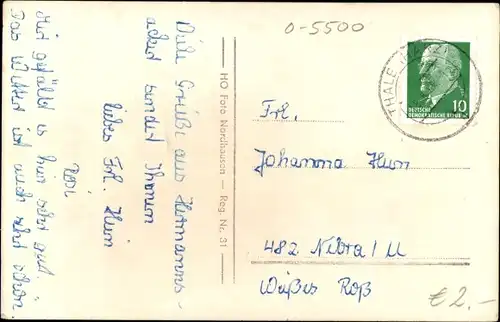 0-5500
THALE (HARZ)
DEUTSCHE
DEMOKRATISCHE REPUBLIK
10
Viele Grüße aus Hermanns-
acker sendet Ihnen
liebes Frl. Hun
Mir gefällt es hier sehr gut.
Das Wetter ist auch sehr schön
HO Foto Nordhausen — Reg. Nr. 31
Frl.
Johanna Hun
482 Nebra/U
Weißes Roß
€ 2.-